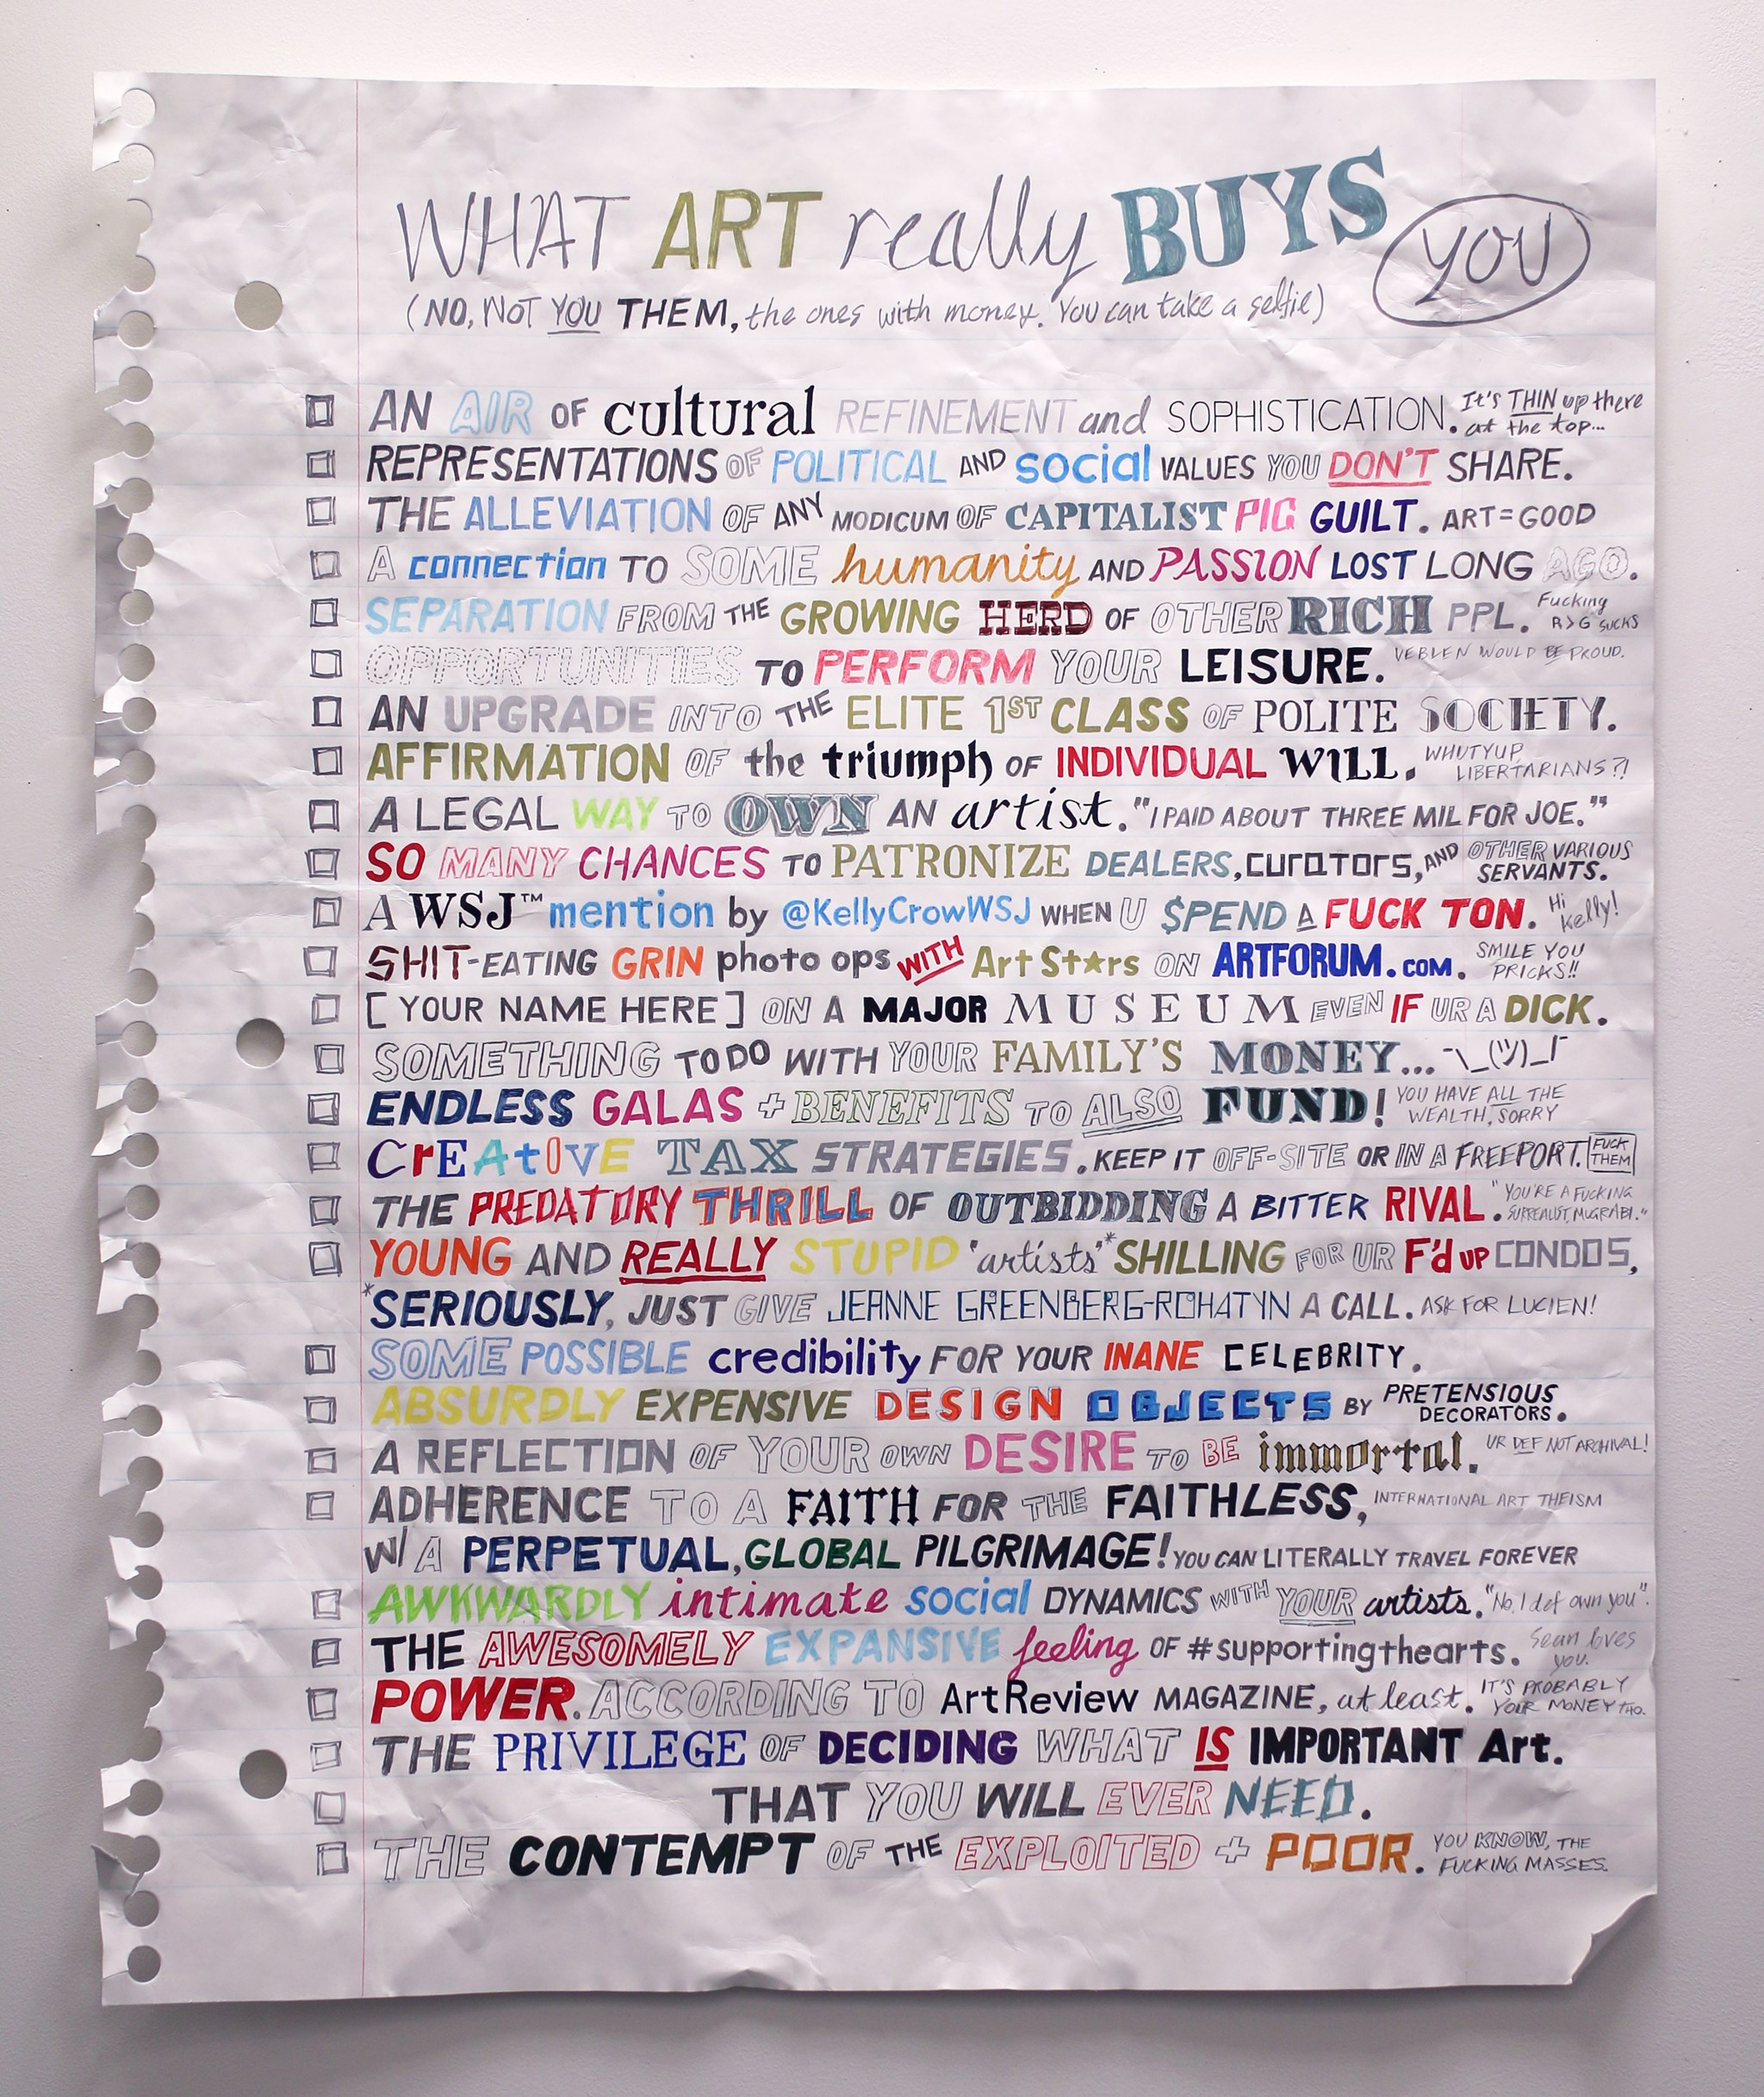 WHAT ART really BUYS YOU
(NO, NOT YOU THEM, the ones with money. You can take a selfie)
AN AIR OF cultural REFINEMENT and SOPHISTICATION. It's THIN up there at the top...
REPRESENTATIONS OF POLITICAL AND social VALUES YOU DON'T SHARE.
THE ALLEVIATION OF ANY MODICUM OF CAPITALIST PIG GUILT. ART=GOOD
A connection TO SOME humanity AND PASSION LOST LONG AGO.
SEPARATION FROM THE GROWING HERD OF OTHER RICH PPL. Fucking R>G SUCKS
OPPORTUNITIES TO PERFORM YOUR LEISURE. VEBLEN WOULD BE PROUD.
AN UPGRADE INTO THE ELITE 1ST CLASS OF POLITE SOCIETY.
AFFIRMATION OF the triumph OF INDIVIDUAL WILL. WHUTYUP, LIBERTARIANS?!
A LEGAL WAY TO OWN AN artist. "I PAID ABOUT THREE MIL FOR JOE."
SO MANY CHANCES TO PATRONIZE DEALERS, curators, AND OTHER VARIOUS SERVANTS.
A WSJ™ mention by @KellyCrowWSJ WHEN U $PEND A FUCK TON. Hi Kelly!
SHIT-EATING GRIN photo ops WITH Art St★rs ON ARTFORUM.COM. SMILE YOU PRICKS!!
[YOUR NAME HERE] ON A MAJOR MUSEUM EVEN IF UR A DICK.
SOMETHING TO DO WITH YOUR FAMILY'S MONEY... ¯\_(ツ)_/¯
ENDLESS GALAS + BENEFITS TO ALSO FUND! YOU HAVE ALL THE WEALTH, SORRY
CrEAtIVE TAX STRATEGIES. KEEP IT OFF-SITE OR IN A FREEPORT. FUCK THEM
THE PREDATORY THRILL OF OUTBIDDING A BITTER RIVAL. "YOU'RE A FUCKING SURREALIST, MUGRABI."
YOUNG AND REALLY STUPID 'artists'* SHILLING FOR UR F'd UP CONDOS,
*SERIOUSLY, JUST GIVE JEANNE GREENBERG-ROHATYN A CALL. ASK FOR LUCIEN!
SOME POSSIBLE credibility FOR YOUR INANE CELEBRITY.
ABSURDLY EXPENSIVE DESIGN OBJECTS BY PRETENSIOUS DECORATORS.
A REFLECTION OF YOUR OWN DESIRE TO BE immortal. UR DEF NOT ARCHIVAL!
ADHERENCE TO A FAITH FOR THE FAITHLESS, INTERNATIONAL ART THEISM
W/ A PERPETUAL, GLOBAL PILGRIMAGE! YOU CAN LITERALLY TRAVEL FOREVER
AWKWARDLY intimate social DYNAMICS WITH YOUR artists. "No, I def own you".
THE AWESOMELY EXPANSIVE feeling OF #supportingthearts. Sean loves you.
POWER. ACCORDING TO ArtReview MAGAZINE, at least. IT'S PROBABLY YOUR MONEY THO.
THE PRIVILEGE OF DECIDING WHAT IS IMPORTANT Art.
THAT YOU WILL EVER NEED.
THE CONTEMPT OF THE EXPLOITED + POOR. YOU KNOW, THE FUCKING MASSES.